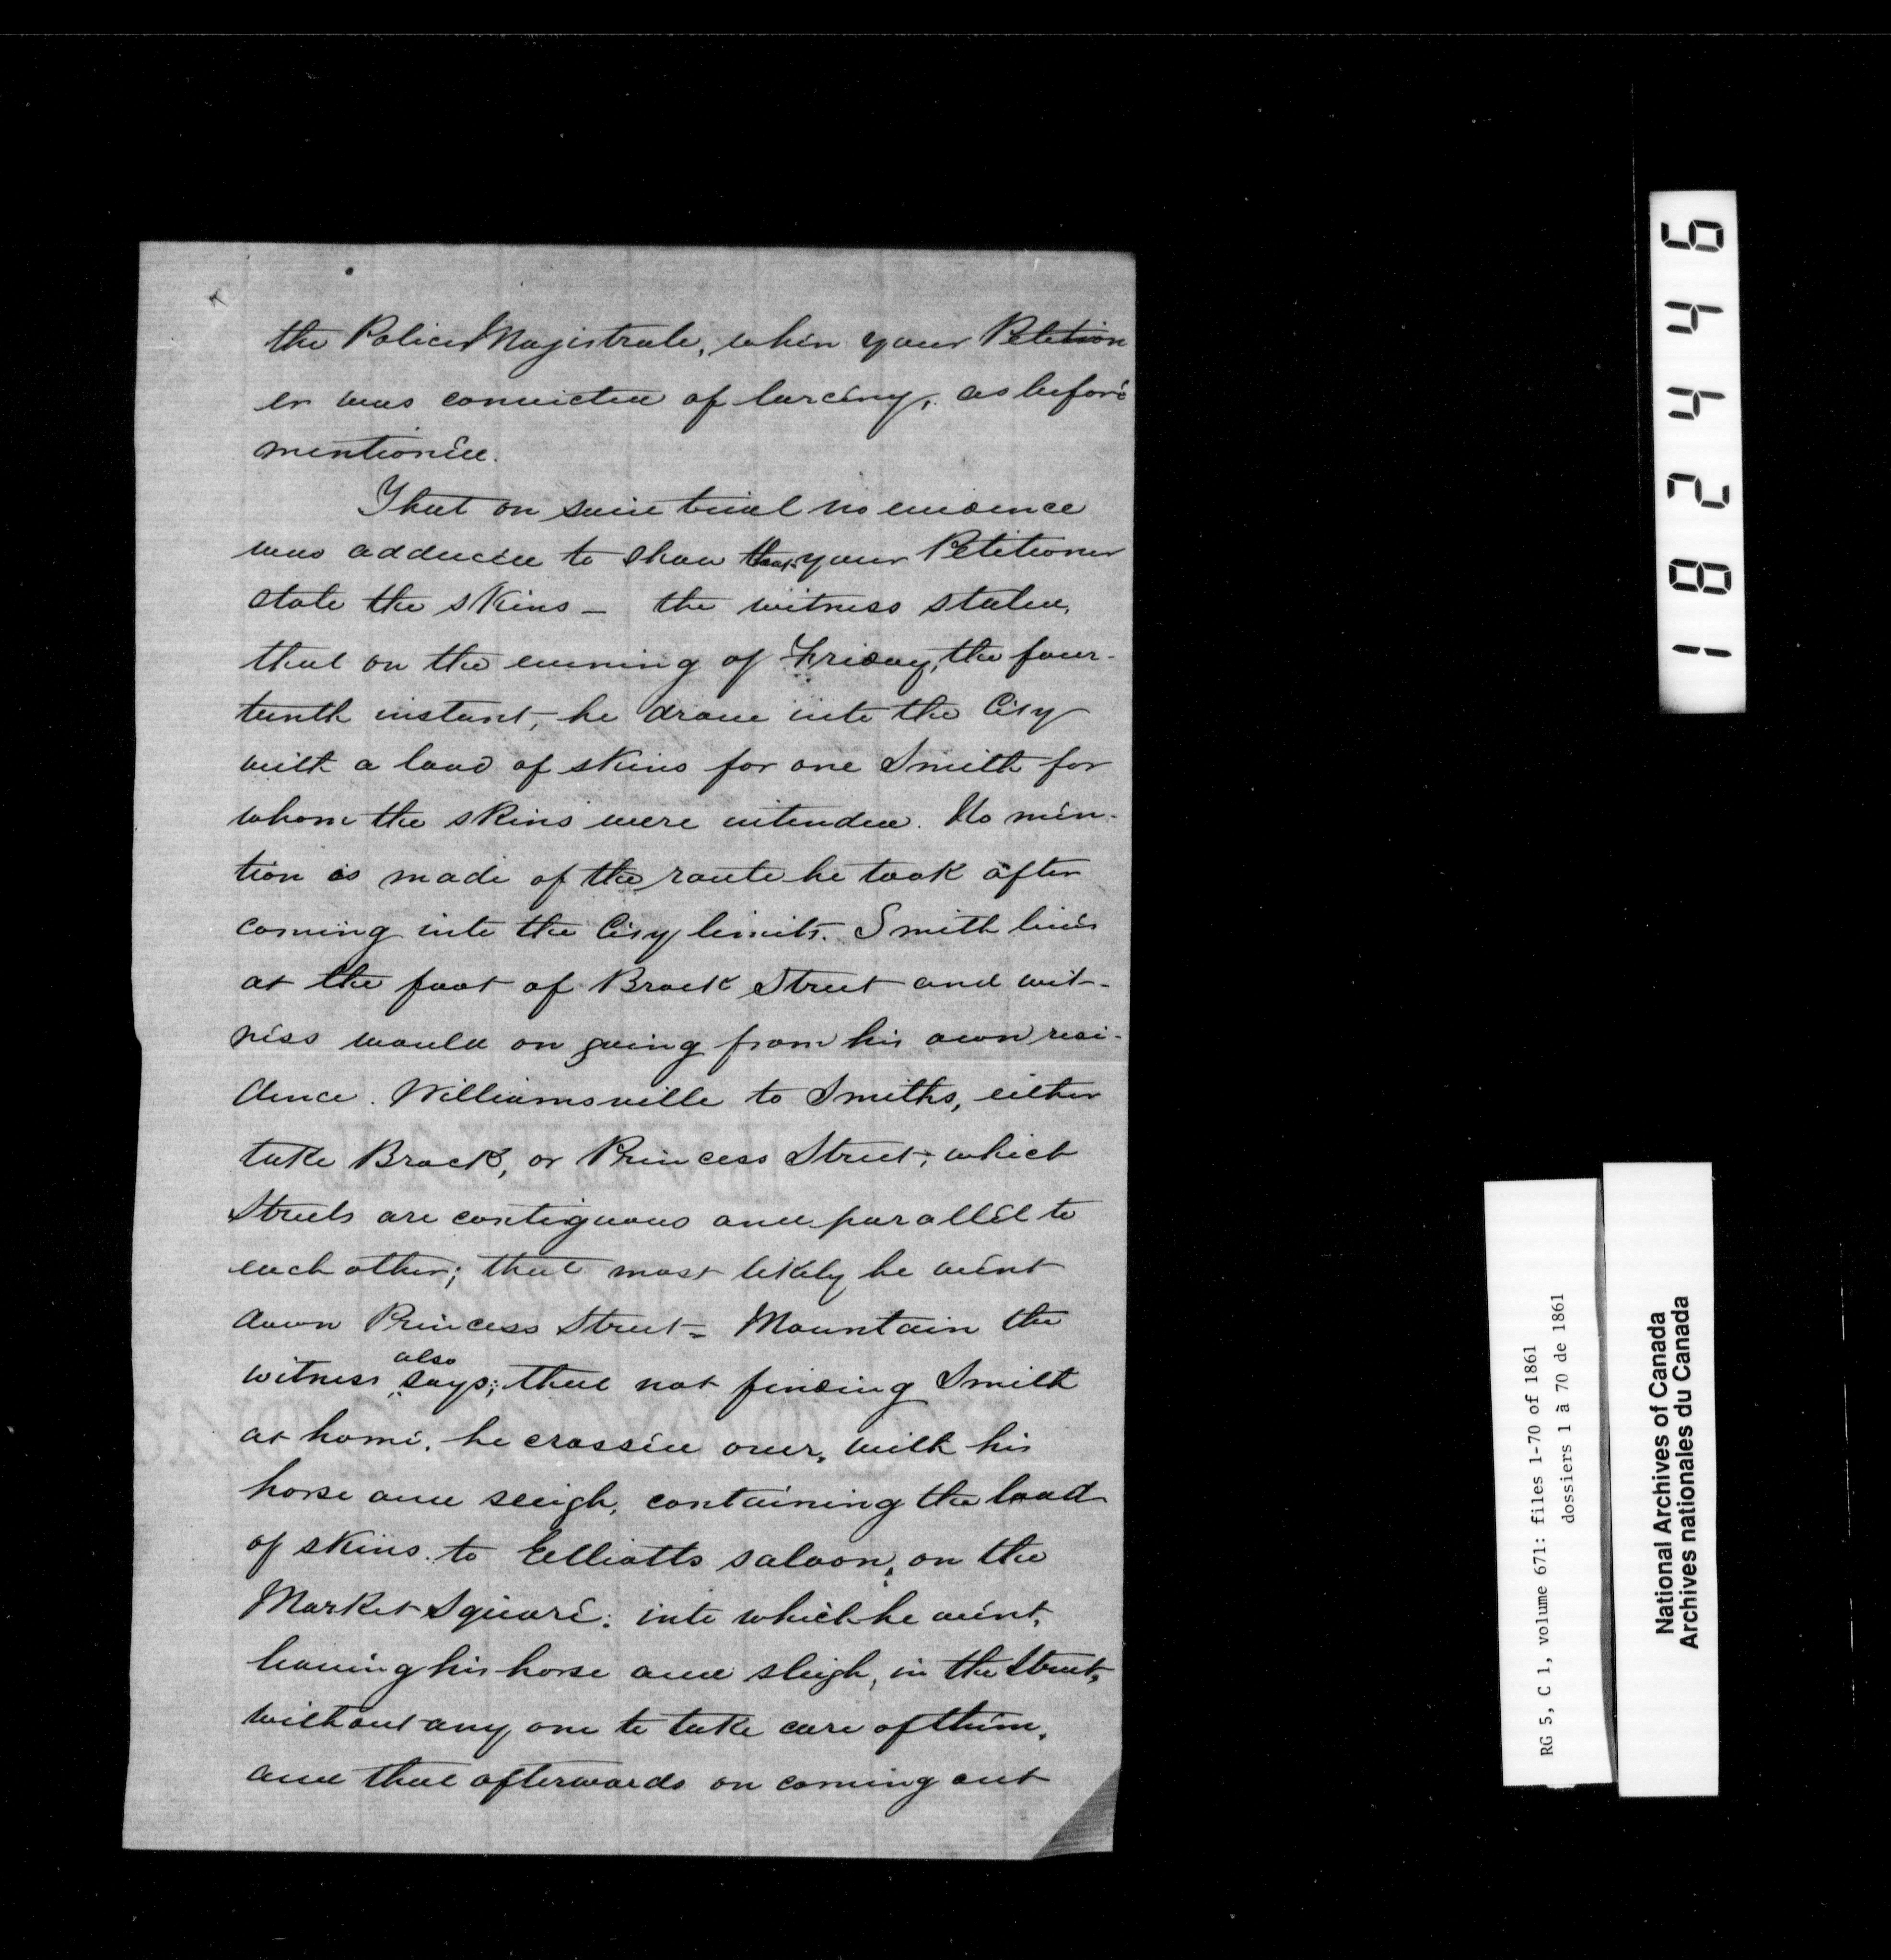 the Police Magistrate, when your Petition
er was convicted of larceny, as before
mentioned.
That on said trial no evidence
was adduced to show that your Petitioner
stole the skins - the witness stated,
that on the evening of Friday, the four-
teenth instant, he drove into the City
with a load of skins for one Smith for
whom the skins were intended. No men-
tion is made of the route he took after
coming into the City limits. Smith lives
at the foot of Brock Street and wit-
ness would on going from his own resi-
dence. Williamsville to Smiths, either
take Brock, or Princess Street, which
Streets are contiguous and parallel to
each other; that most likely he went
down Princess Street - Mountain the
witness also says; that not finding Smith
at home, he crossed over, with his
horse and sleigh, containing the load
of skins. to Elliotts saloon, on the
Market Square: into which he went,
leaving his horse and sleigh, in the Street,
without any one to take care of them,
and that afterwards on coming out
182446
RG 5, C 1, volume 671: files 1-70 of 1861
dossiers 1 à 70 de 1861
National Archives of Canada
Archives nationales du Canada